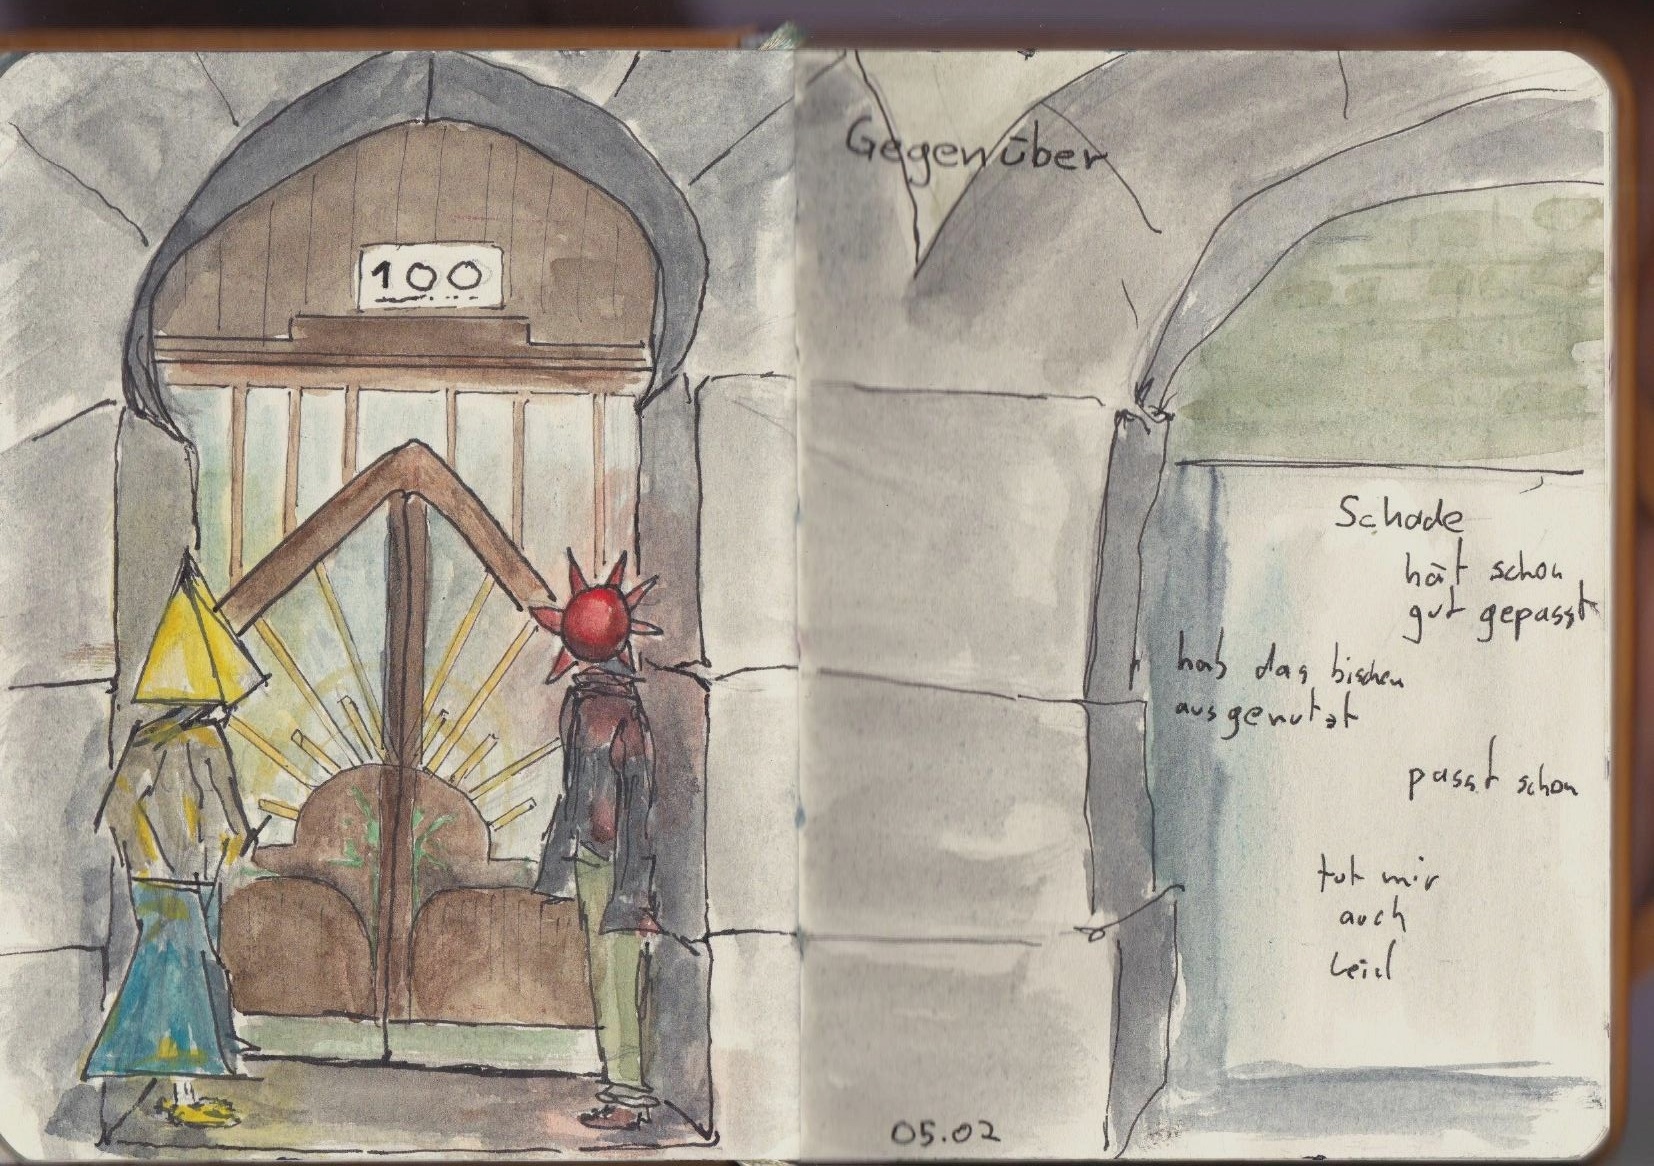 100
Gegenüber
Schade
hät schon
gut gepasst
hab das bischen
ausgenutzt
passt schon
tut mir
auch
leid
05.02